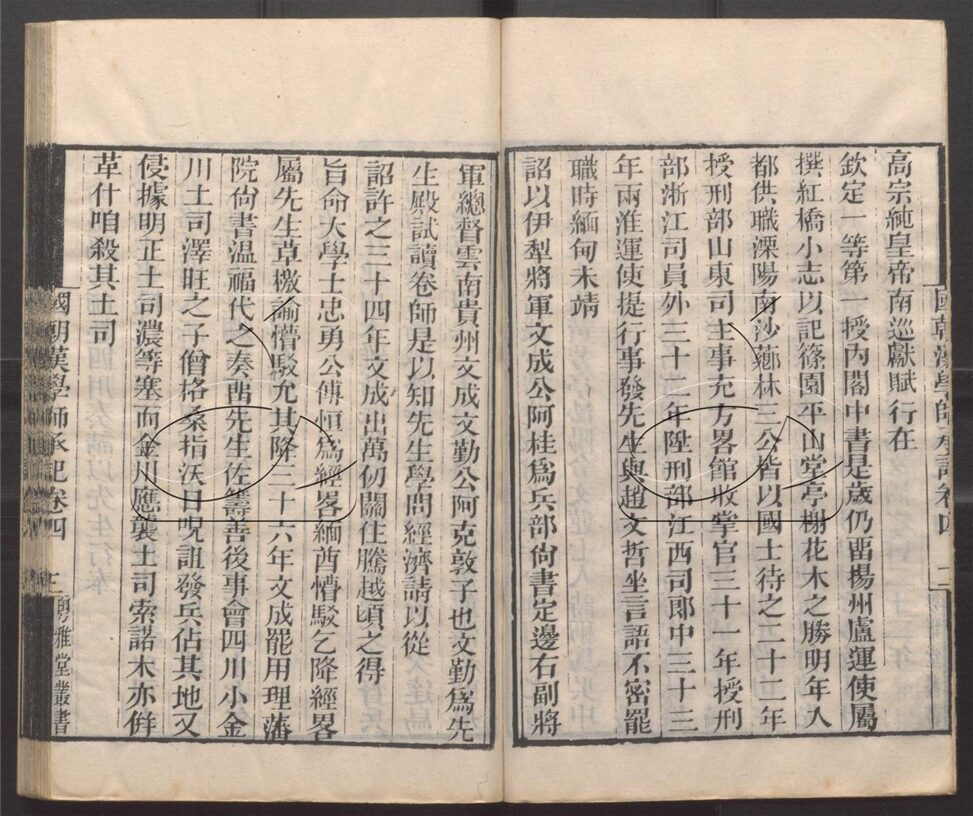 高宗純皇帝南巡獻賦行在
欽定一等第一授內閣中書是歲仍畱揚州盧運使屬
撰紅橋小志以記篠園平山堂亭榭花木之勝明年入
都供職溧陽南沙蒋林三公皆以國士待之二十二年
授刑部山東司主事充方畧館收掌官三十一年授刑
部浙江司員外三十二年陞刑部江西司郎中三十三
年兩淮運使提行事發先生與趙文哲坐言語不密罷
職時緬甸未靖
詔以伊犁將軍文成公阿桂爲兵部尙書定邊右副將
國朝漢學師承記卷四
二
軍總督雲南貴州文成文勤公阿克敦子也文勤爲先
生殿試讀卷師是以知先生學問經濟請以從
詔許之三十四年文成出萬仞關住騰越頃之得
旨命大學士忠勇公傅恒爲經畧緬酋懵駁乞降經畧
屬先生草檄諭懵駁允其降三十六年文成罷用理藩
院尙書溫福代之奏畱先生佐籌善後事會四川小金
川土司澤旺之子僧格桑指沃日呪詛發兵佔其地又
侵據明正土司濃等塞而金川應襲土司索諾木亦倂
革什咱殺其土司
國朝漢學師承記卷四
二
粵雅堂叢書